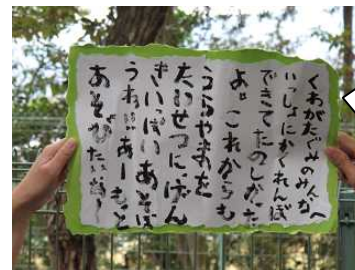 くわがたぐみのみんなへ
いっしょにかくれんぼ
できてたのしかった
よ。これからも
うらやまを
たいせつに、げん
きいっぱいあそぼ
うね!!あーもっと
あそびたい